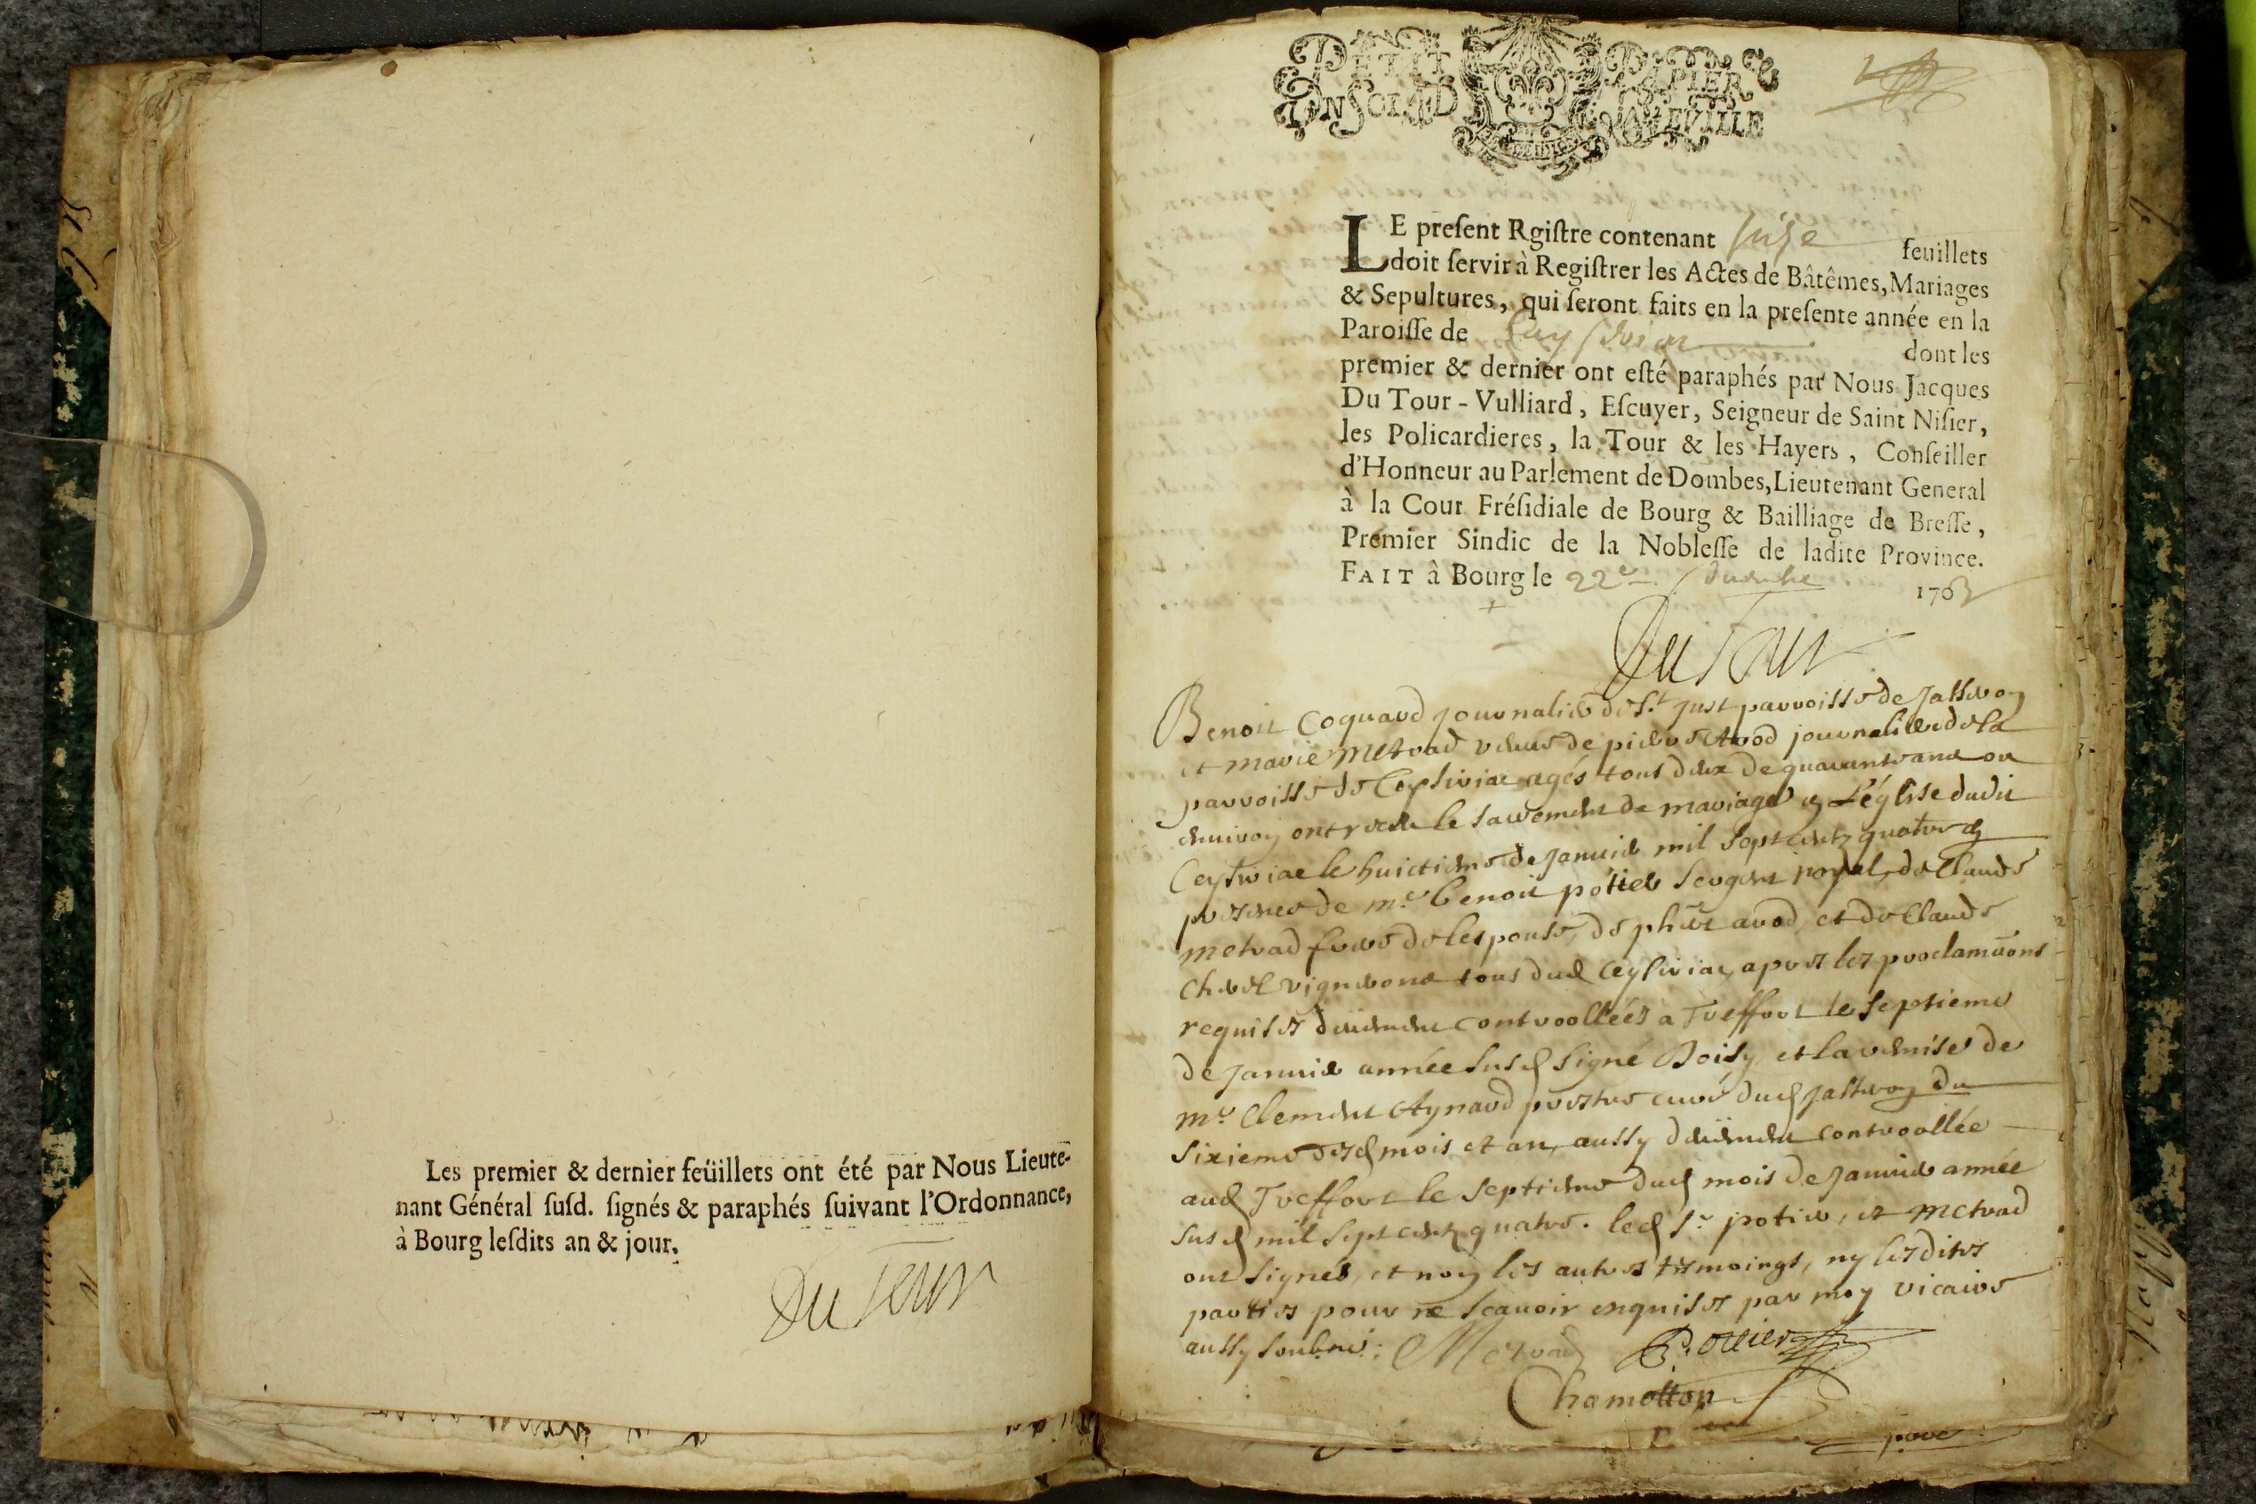 Les premier & dernier feüillets ont été par Nous Lieute-
nant Général ſuſd. ſignés & paraphés ſuivant l'Ordonnance,
à Bourg leſdits an & jour.
Du Tour
PETIT PAPIER
UN SOL 4 D LA FEVILLE
LE preſent Rgiſtre contenant feuillets
doit ſervir à Regiſtrer les Actes de Bâtêmes, Mariages
& Sepultures, qui ſeront faits en la preſente année en la
Paroiſſe de dont les
premier & dernier ont eſté paraphés par Nous Jacques
Du Tour-Vulliard, Eſcuyer, Seigneur de Saint Niſier,
les Policardieres, la Tour & les Hayers, Conſeiller
d'Honneur au Parlement de Dombes, Lieutenant General
à la Cour Fréſidiale de Bourg & Bailliage de Breſſe,
Premier Sindic de la Nobleſſe de ladite Province.
FAIT â Bourg le 22e 1703
Du Tour
Benoit Coquard journalier de St. Just parroisse de Jasseron
et marie metrad veuve de pierre journalier de la
parroisse de Ceyseriac agés tous deux de quarante ans ou
environ ont receu le sacrement de mariage en L'église dudit
Ceyseriac le huictieme de Janvier mil sept centz quatre en
presence de me. benoit potier sergent royal, de Claude
metrad frere de lespouse, de phert avod, et de Claude
vignerons tous dud Ceyseriac, apres les proclamaons
requises deuement controollées a Treffort le septieme
de Janvier année susd signé Boisy, et la remise de
mre Clement Aynard prestre curé dud Jasseron du
sixieme desd mois et an, aussy deuement controollée
aud Treffort le septieme dud mois de Janvier année
susd mil sept centz quatre. led sr potier, et metrad
ont signés, et non les autres tesmoings, ny lesdites
parties pour ne scavoir enquises par moy vicaire
aussy soubne: Metrad B. Potier
Chamotton